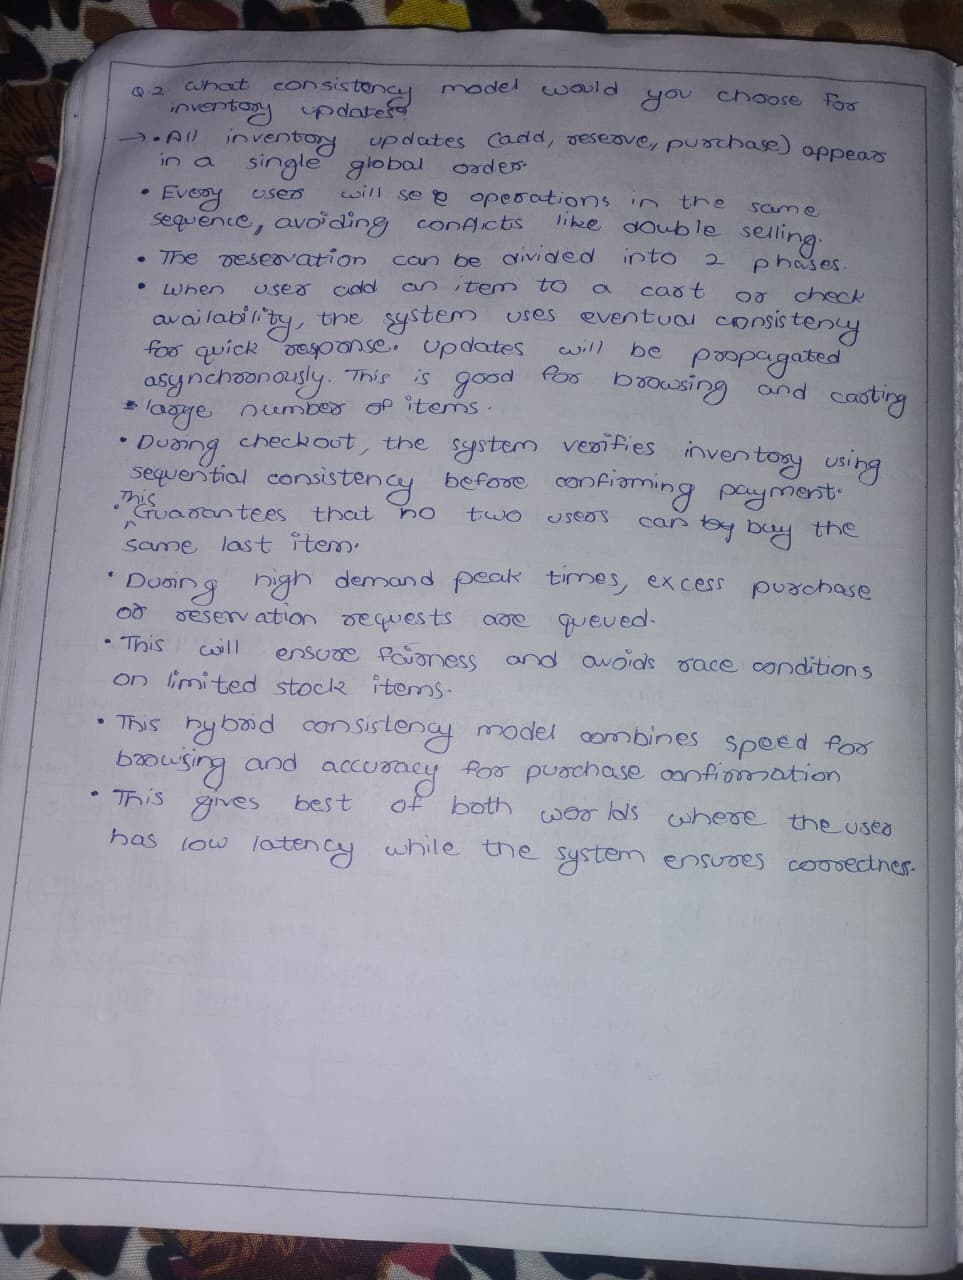 Q 2 What consistency model would you choose for
inventory updates?
→ • All inventory updates (add, reserve, purchase) appear
in a single global order.
• Every user will see operations in the same
sequence, avoiding conflicts like double selling.
• The reservation can be divided into 2 phases.
• When user add an item to a cart or check
availability, the system uses eventual consistency
for quick response. Updates will be propagated
asynchronously. This is good for browsing and carting
large number of items.
• During checkout, the system verifies inventory using
sequential consistency before confirming payment.
• This Guarantees that no two users can buy the
same last item.
• During high demand peak times, excess purchase
or reservation requests are queued.
• This will ensure fairness and avoids race conditions
on limited stock items.
• This hybrid consistency model combines speed for
browsing and accuracy for purchase confirmation
• This gives best of both worlds where the user
has low latency while the system ensures correctness.